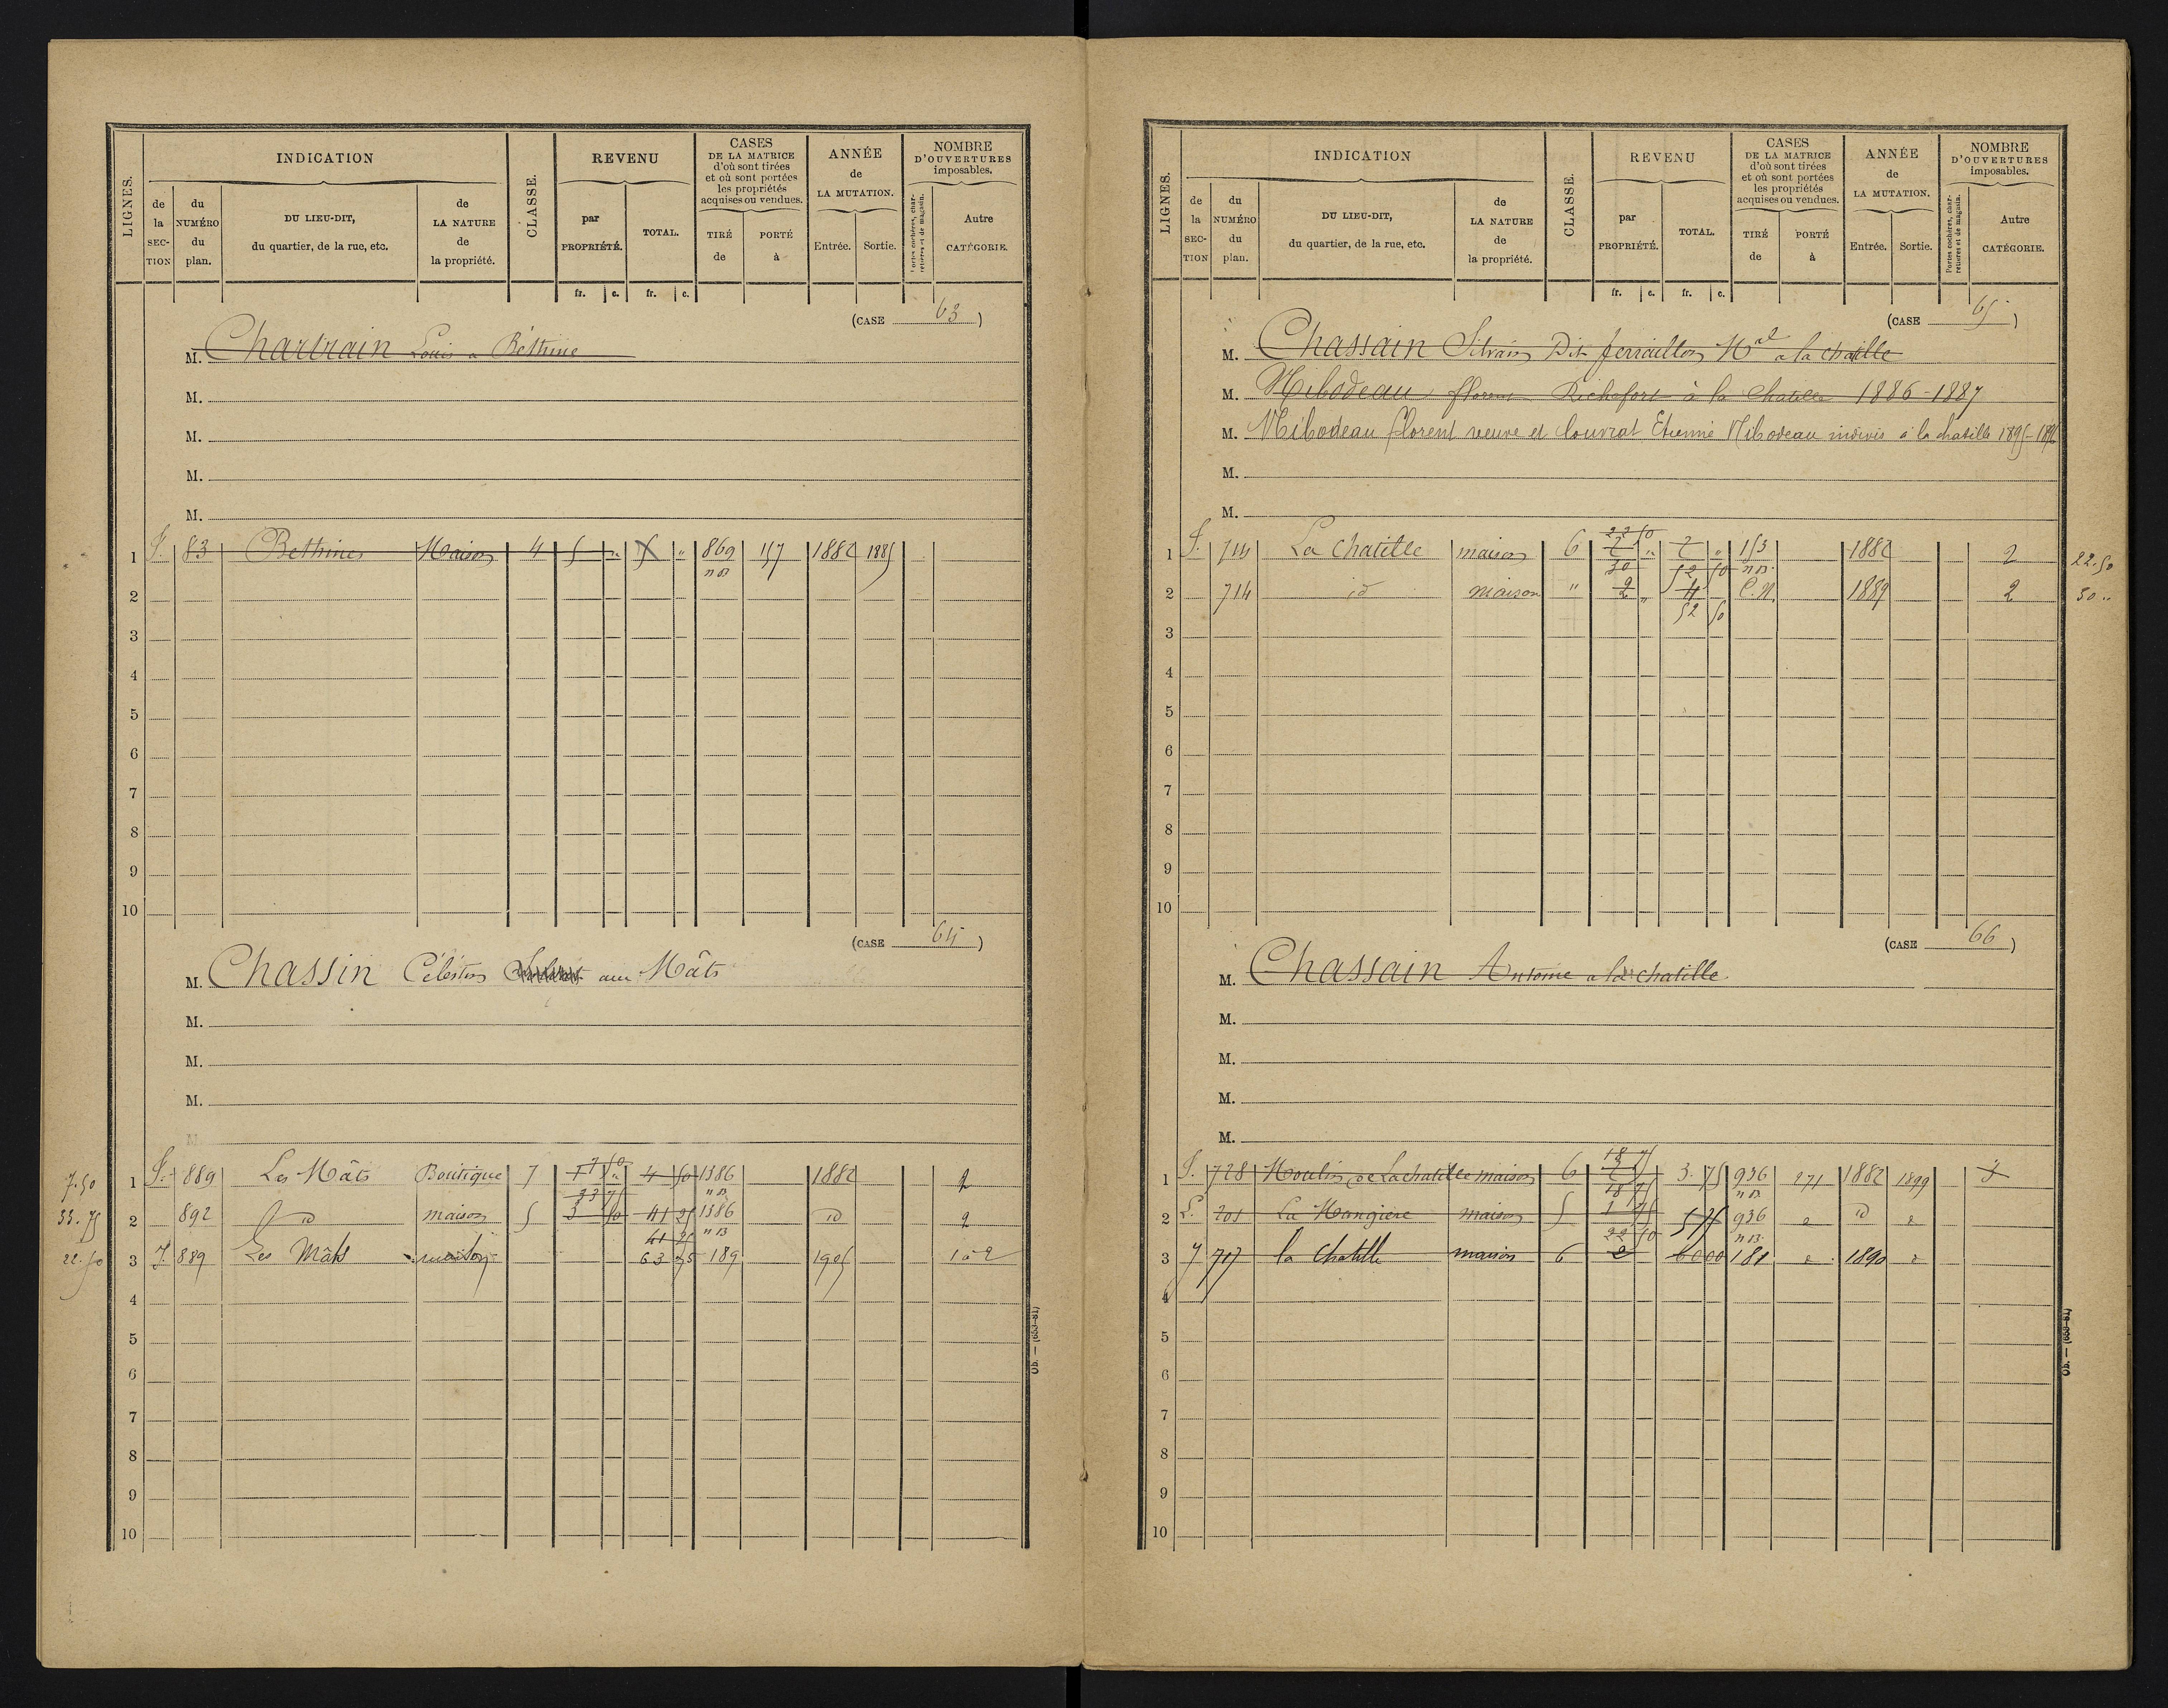 LIGNES.
INDICATION
de la SECTION
du NUMÉRO du plan.
DU LIEU-DIT, du quartier, de la rue, etc.
de LA NATURE de la propriété.
CLASSE.
REVENU
par PROPRIÉTÉ.
TOTAL.
fr. c. fr. c.
CASES DE LA MATRICE d'où sont tirées et où sont portées les propriétés acquises ou vendues.
TIRÉ de
PORTÉ à
ANNÉE de LA MUTATION.
Entrée.
Sortie.
NOMBRE D'OUVERTURES imposables.
Portes cochères, charretières et de magasin.
Autre CATÉGORIE.
(CASE 63)
M. Chartrain Louis a Béthine
M.
M.
M.
M.
1 83 Bethines Maison 4 5 " 5 " 869 157 1882 1885
n B
2
3
4
5
6
7
8
9
10
(CASE 64)
M. Chassin Célestin aux Mâts
M.
M.
M.
M.
7.50 1 889 Les Mâts Boutique 7 1 " 7 50 4 50 1386 1882 2
n B
33.75 2 892 id maison 5 33 75 3 50 41 25 1386 id 2
41 25 n B
22.50 3 889 Les Mâts maison 63 75 189 1905 1 à 2
4
5
6
7
8
9
10
Ob. — (653-81)
LIGNES.
INDICATION
de la SECTION
du NUMÉRO du plan.
DU LIEU-DIT, du quartier, de la rue, etc.
de LA NATURE de la propriété.
CLASSE.
REVENU
par PROPRIÉTÉ.
TOTAL.
fr. c. fr. c.
CASES DE LA MATRICE d'où sont tirées et où sont portées les propriétés acquises ou vendues.
TIRÉ de
PORTÉ à
ANNÉE de LA MUTATION.
Entrée.
Sortie.
NOMBRE D'OUVERTURES imposables.
Portes cochères, charretières et de magasin.
Autre CATÉGORIE.
(CASE 65)
M. Chassain Silvain Dit ferraillon Mal a la chatille
M. Nibodeau florent Richefort à la Chatille 1886-1887
M. Nibodeau florent veuve et Louvrat Etienne Nibodeau indivis à la chatille 1895-1896
M.
M.
22 50
1 714 La chatille maison 6 2 " 2 " 153 1882 2 22.50
30 52 50 n B.
2 714 id maison " 2 " 4 C.N. 1889 2 30 "
52 50
3
4
5
6
7
8
9
10
(CASE 66)
M. Chassain Antoine a la chatille
M.
M.
M.
M.
18 75
1 728 Moulin de La chatille maison 6 2 3. 75 936 271 1882 1899
18 75 n B
2 201 La Mangière maison 5 1 75 5 75 936 id
22 50 n B.
3 717 la Chatille maison 6 2 60 00 181 1890
4
5
6
7
8
9
10
Ob. — (653-81)